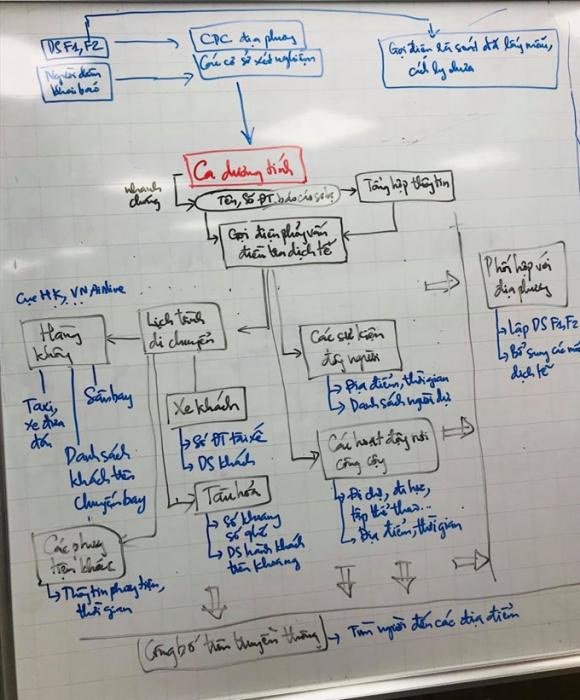 DS F1, F2
Người dân
khai báo
CDC địa phương
Các cơ sở xét nghiệm
Gọi điện rà soát đã lấy mẫu,
cách ly chưa
Ca dương tính
nhanh
chóng
Tên, Số ĐT, báo cáo sơ bộ
Tổng hợp thông tin
Gọi điện phỏng vấn
điều tra dịch tễ
Phối hợp với
địa phương
Lập DS F1, F2
Bổ sung các
dịch tễ
Cục HK, VN Airline
Hàng
không
Lịch trình
di chuyển
Các sự kiện
đông người
Địa điểm, thời gian
Danh sách người dự
Taxi,
xe đưa
đón
Sân bay
Danh sách
khách trên
chuyến bay
Xe khách
Số ĐT tài xế
DS khách
Các hoạt động nơi
công cộng
Đi chợ, đi học,
tập thể thao...
Địa điểm, thời gian
Tàu hỏa
Số khoang
số ghế
DS hành khách
trên khoang
Các phương
tiện khác
Thông tin phương tiện,
thời gian
Công bố trên truyền thông
Tìm người đến các địa điểm